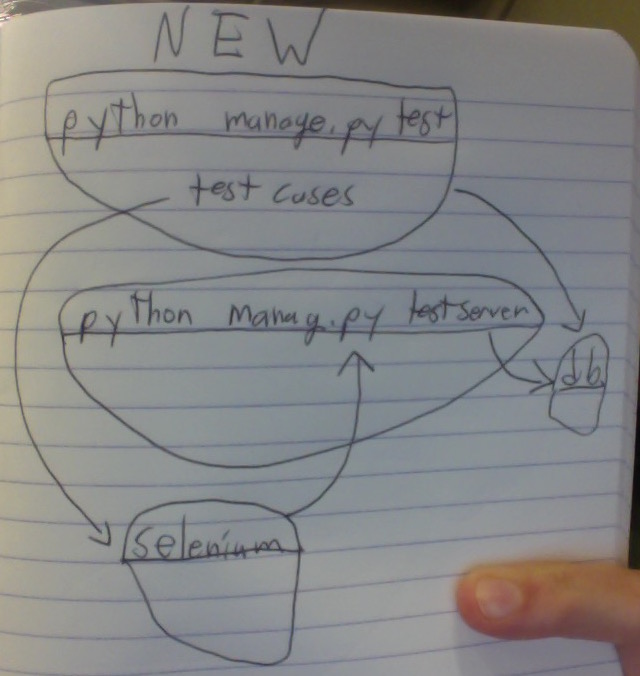 NEW
python manage.py test
test cases
python manag.py testserver
db
selenium